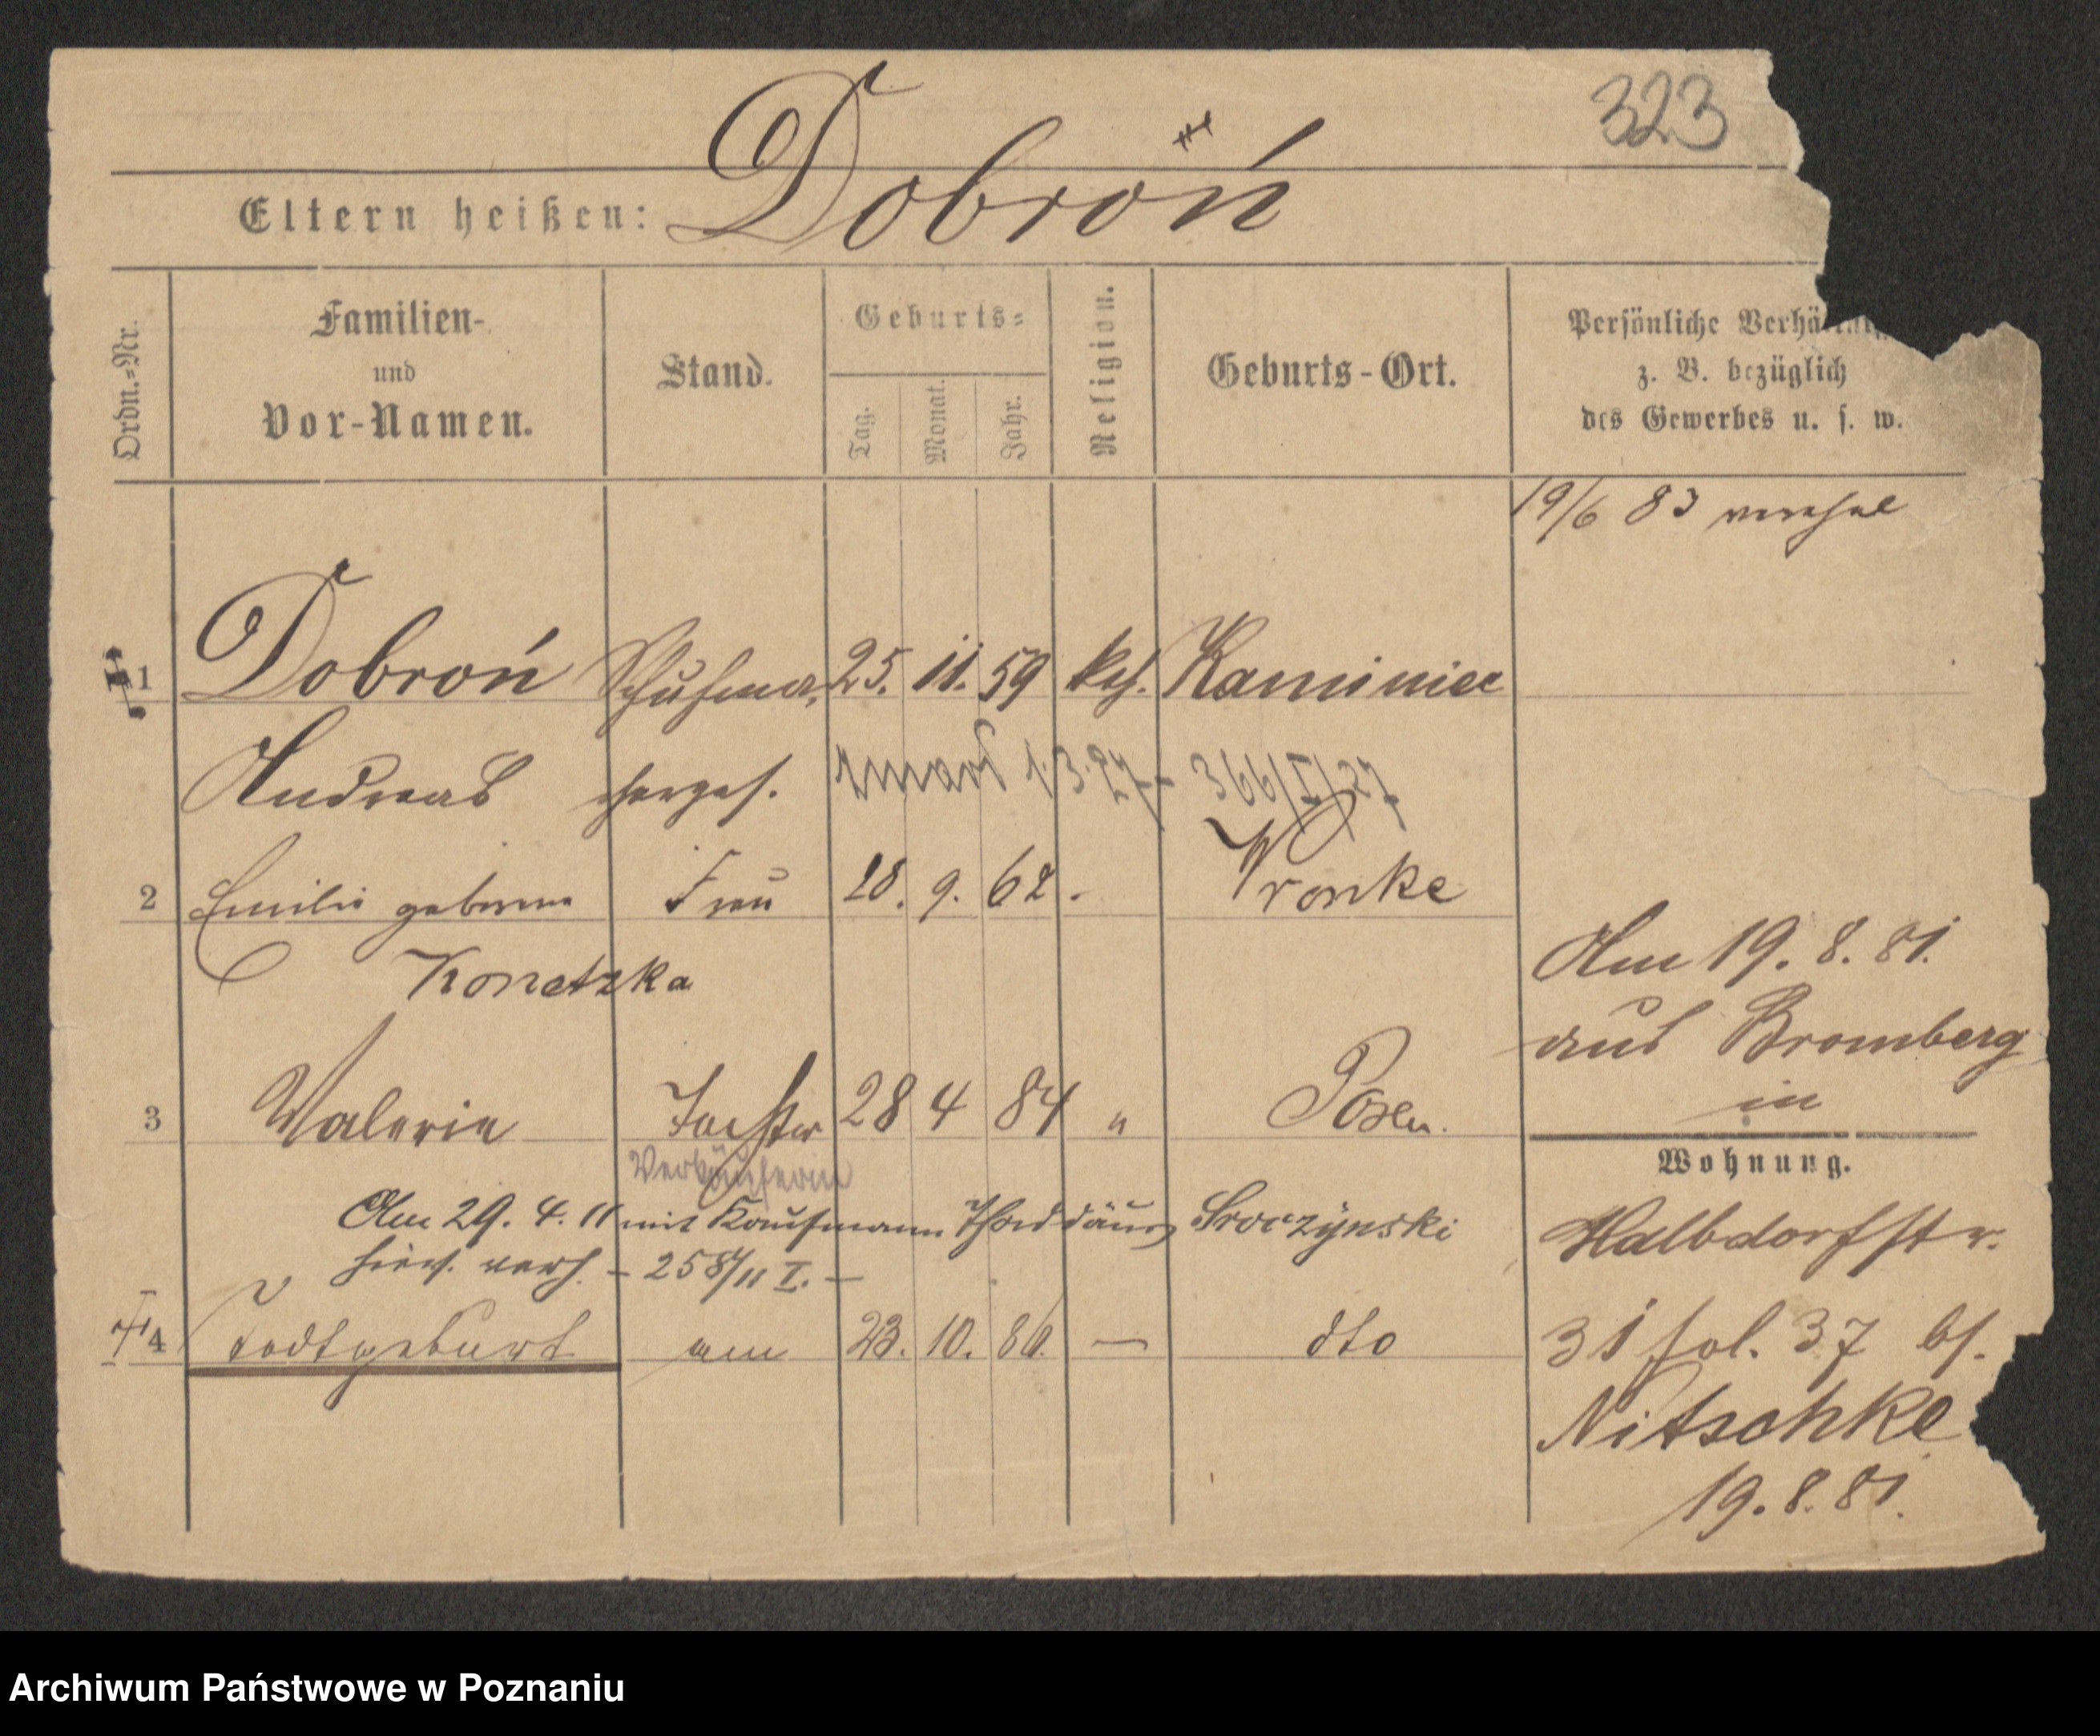 323
Eltern heißen: Dobroń
Ordn.=Nr.
Familien-
und
Vor-Namen.
Stand.
Geburts=
Tag.
Monat.
Jahr.
Religion.
Geburts-Ort.
Persönliche
z. B. bezüglich
des Gewerbes u. s. w.
19/6 83
1 Dobroń Schuhmа. 25. 11. 59 kth. Kamimiec
Andreas zmarł 1.3.27 - 366/I/27
2 Emilie geborene Frau 28. 9. 62. Wronke
Konetzka
Am 19. 8. 81.
aus Bromberg
in
3 Valerie Tochter 28 4 84 " Posen.
Verkäuferin
Wohnung.
Am 29. 4. 11 mit Kaufmann Thaddäus Sroczynski
hies. verh. - 258/11 I. -
Halbdorfstr.
4 Todtgeburt am 23. 10. 86. — dto
31 fol. 37 bf.
Nitschke
19. 8. 81.
Archiwum Państwowe w Poznaniu